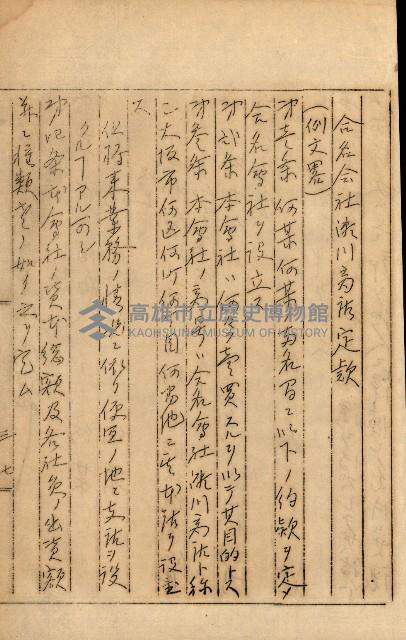 合名会社瀬川商店定款
(例文畧)
第壱条 何某何某 名ヲ以下ノ約款ヲ定メ
合名會社ヲ設立ス
第弐条 本會社ハ何々賣買スルヲ以テ其目的トス
第参条 本會社ノ商号ハ合名會社瀬川商店ト称
シ大阪市何区何町何 目何番地ニ本店ヲ設置
ス
但将来業務ノ情況ニ依リ便宜ノ地ニ支店ヲ設
クルコトアルヘシ
第四条 本會社ノ資本総額及各社員ノ出資額
並ニ種類 ノ如ク之ヲ定ム
三七
高雄市立歷史博物館
KAOHSIUNG MUSEUM OF HISTORY